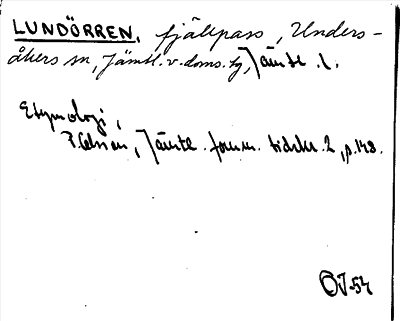 LUNDÖRREN, fjällpass, Unders-
åkers sn, Jämtl. v. doms. tg, Jämtl. l.
Etymologi,
P. Olsson, Jämtl. fornm. tidskr. 2, p. 148.
ÖJ-54